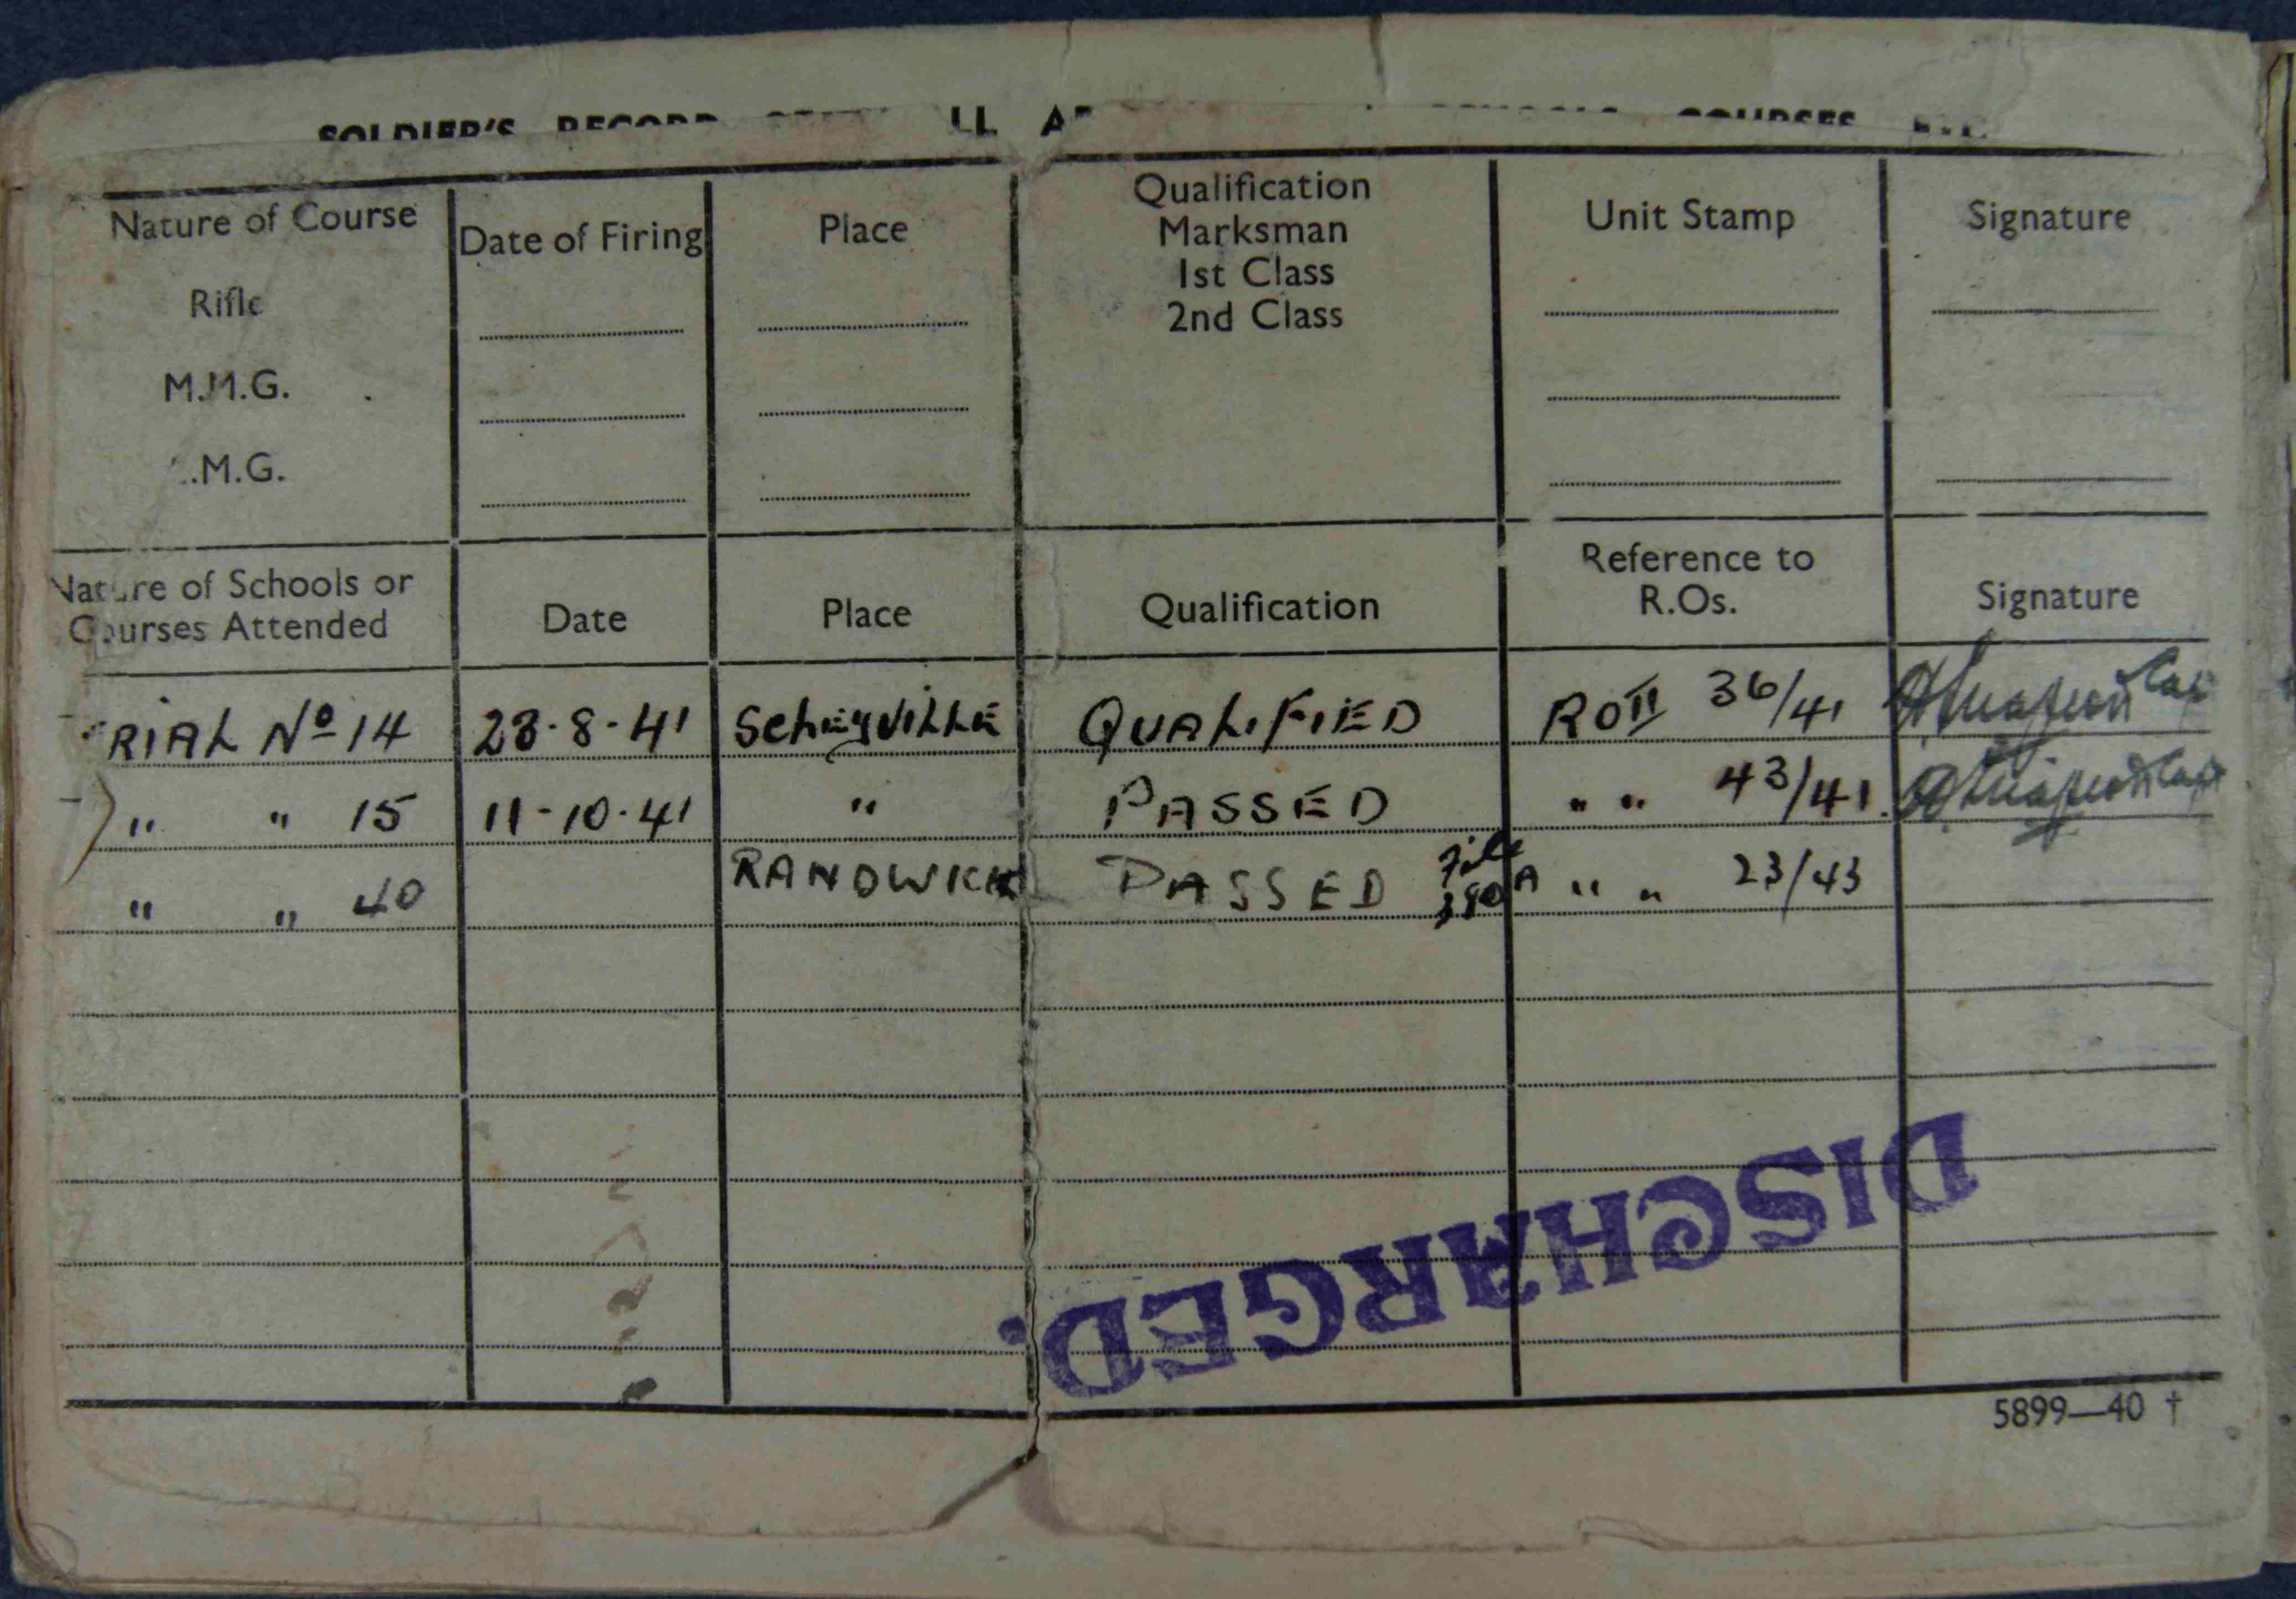 SOLDIER'S RECORD
Nature of Course Date of Firing Place Qualification Marksman 1st Class 2nd Class Unit Stamp Signature
Rifle
M.M.G.
.M.G.
Nature of Schools or Courses Attended Date Place Qualification Reference to R.Os. Signature
RIAL No 14 28-8-41 SCHEYVILLE QUALIFIED RO II 36/41
" " 15 11-10-41 " PASSED " " 43/41
" " 40 RANDWICK PASSED File 380A " " 23/43
DISCHARGED.
5899—40 †